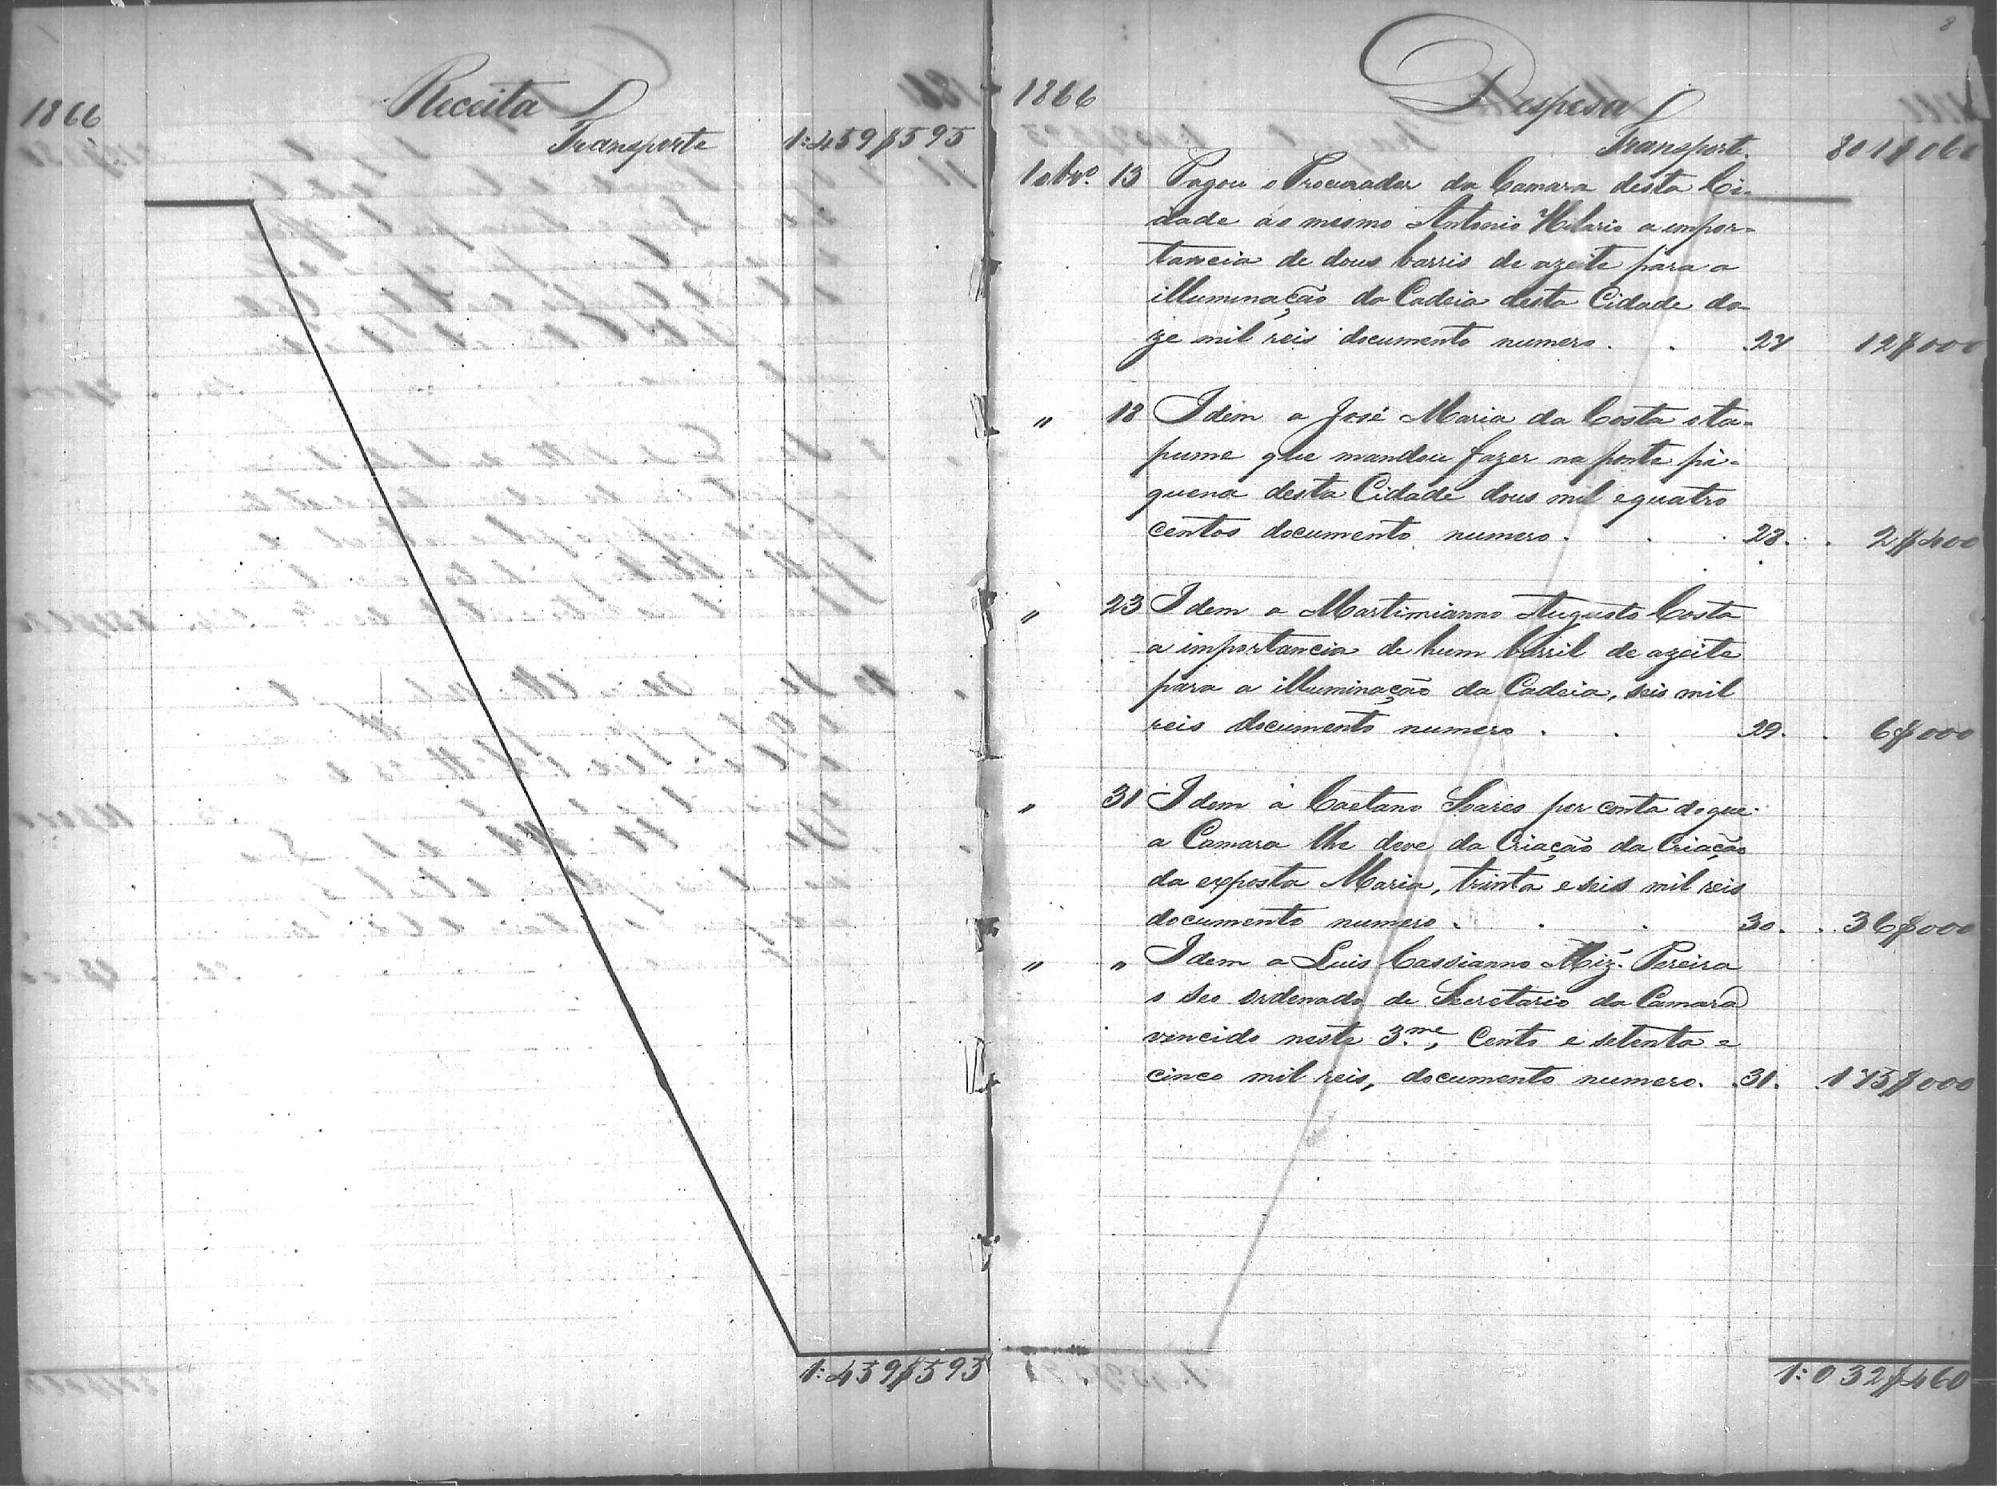 1866
Receita
Transporte 1:459$595
1:459$595
8
1866
Despesa
Transporte 801$060
10bro. 13 Pagou o Procurador da Camara desta Ci-
dade ao mesmo Antonio Hilario a impor-
tancia de dous barris de azeite para a
illuminação da Cadeia desta Cidade do-
ze mil reis documento numero . . 27 12$000
" 18 Idem a José Maria da Costa o ta-
pume que mandou fazer na ponte pi-
quena desta Cidade dous mil e quatro
centos documento numero . . . 28. . 2$400
" 23 Idem a Martimianno Augusto Costa
a importancia de hum barril de azeite
para a illuminação da Cadeia, seis mil
reis documento numero . . 29. . 6$000
" 31 Idem a Caetano Soares por conta do que
a Camara lhe deve da Criação da Criação
da exposta Maria, trinta e seis mil reis
documento numero . . . 30. . 36$000
" " Idem a Luis Cassianno Miz. Pereira
o seo ordenado de Secretario da Camara
vencido neste 3.me, Cento e setenta e
cinco mil reis, documento numero. . 31. . 175$000
1:032$460